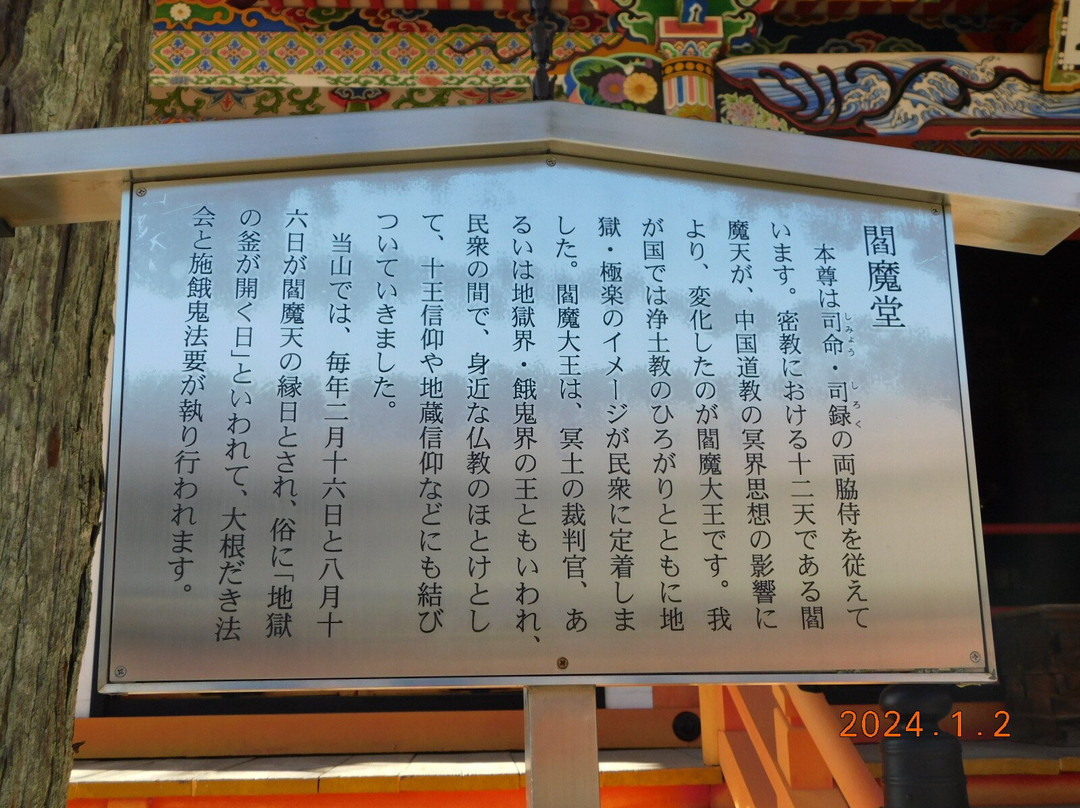 閻魔堂
本尊は司命・司録の両脇侍を従えて
しみょう
しろく
います。密教における十二天である閻
魔天が、中国道教の冥界思想の影響に
より、変化したのが閻魔大王です。我
が国では浄土教のひろがりとともに地
獄・極楽のイメージが民衆に定着しま
した。閻魔大王は、冥土の裁判官、あ
るいは地獄界・餓鬼界の王ともいわれ、
民衆の間で、身近な仏教のほとけとし
て、十王信仰や地蔵信仰などにも結び
ついていきました。
当山では、毎年二月十六日と八月十
六日が閻魔天の縁日とされ、俗に「地獄
の釜が開く日」といわれて、大根だき法
会と施餓鬼法要が執り行われます。
2024.1.2